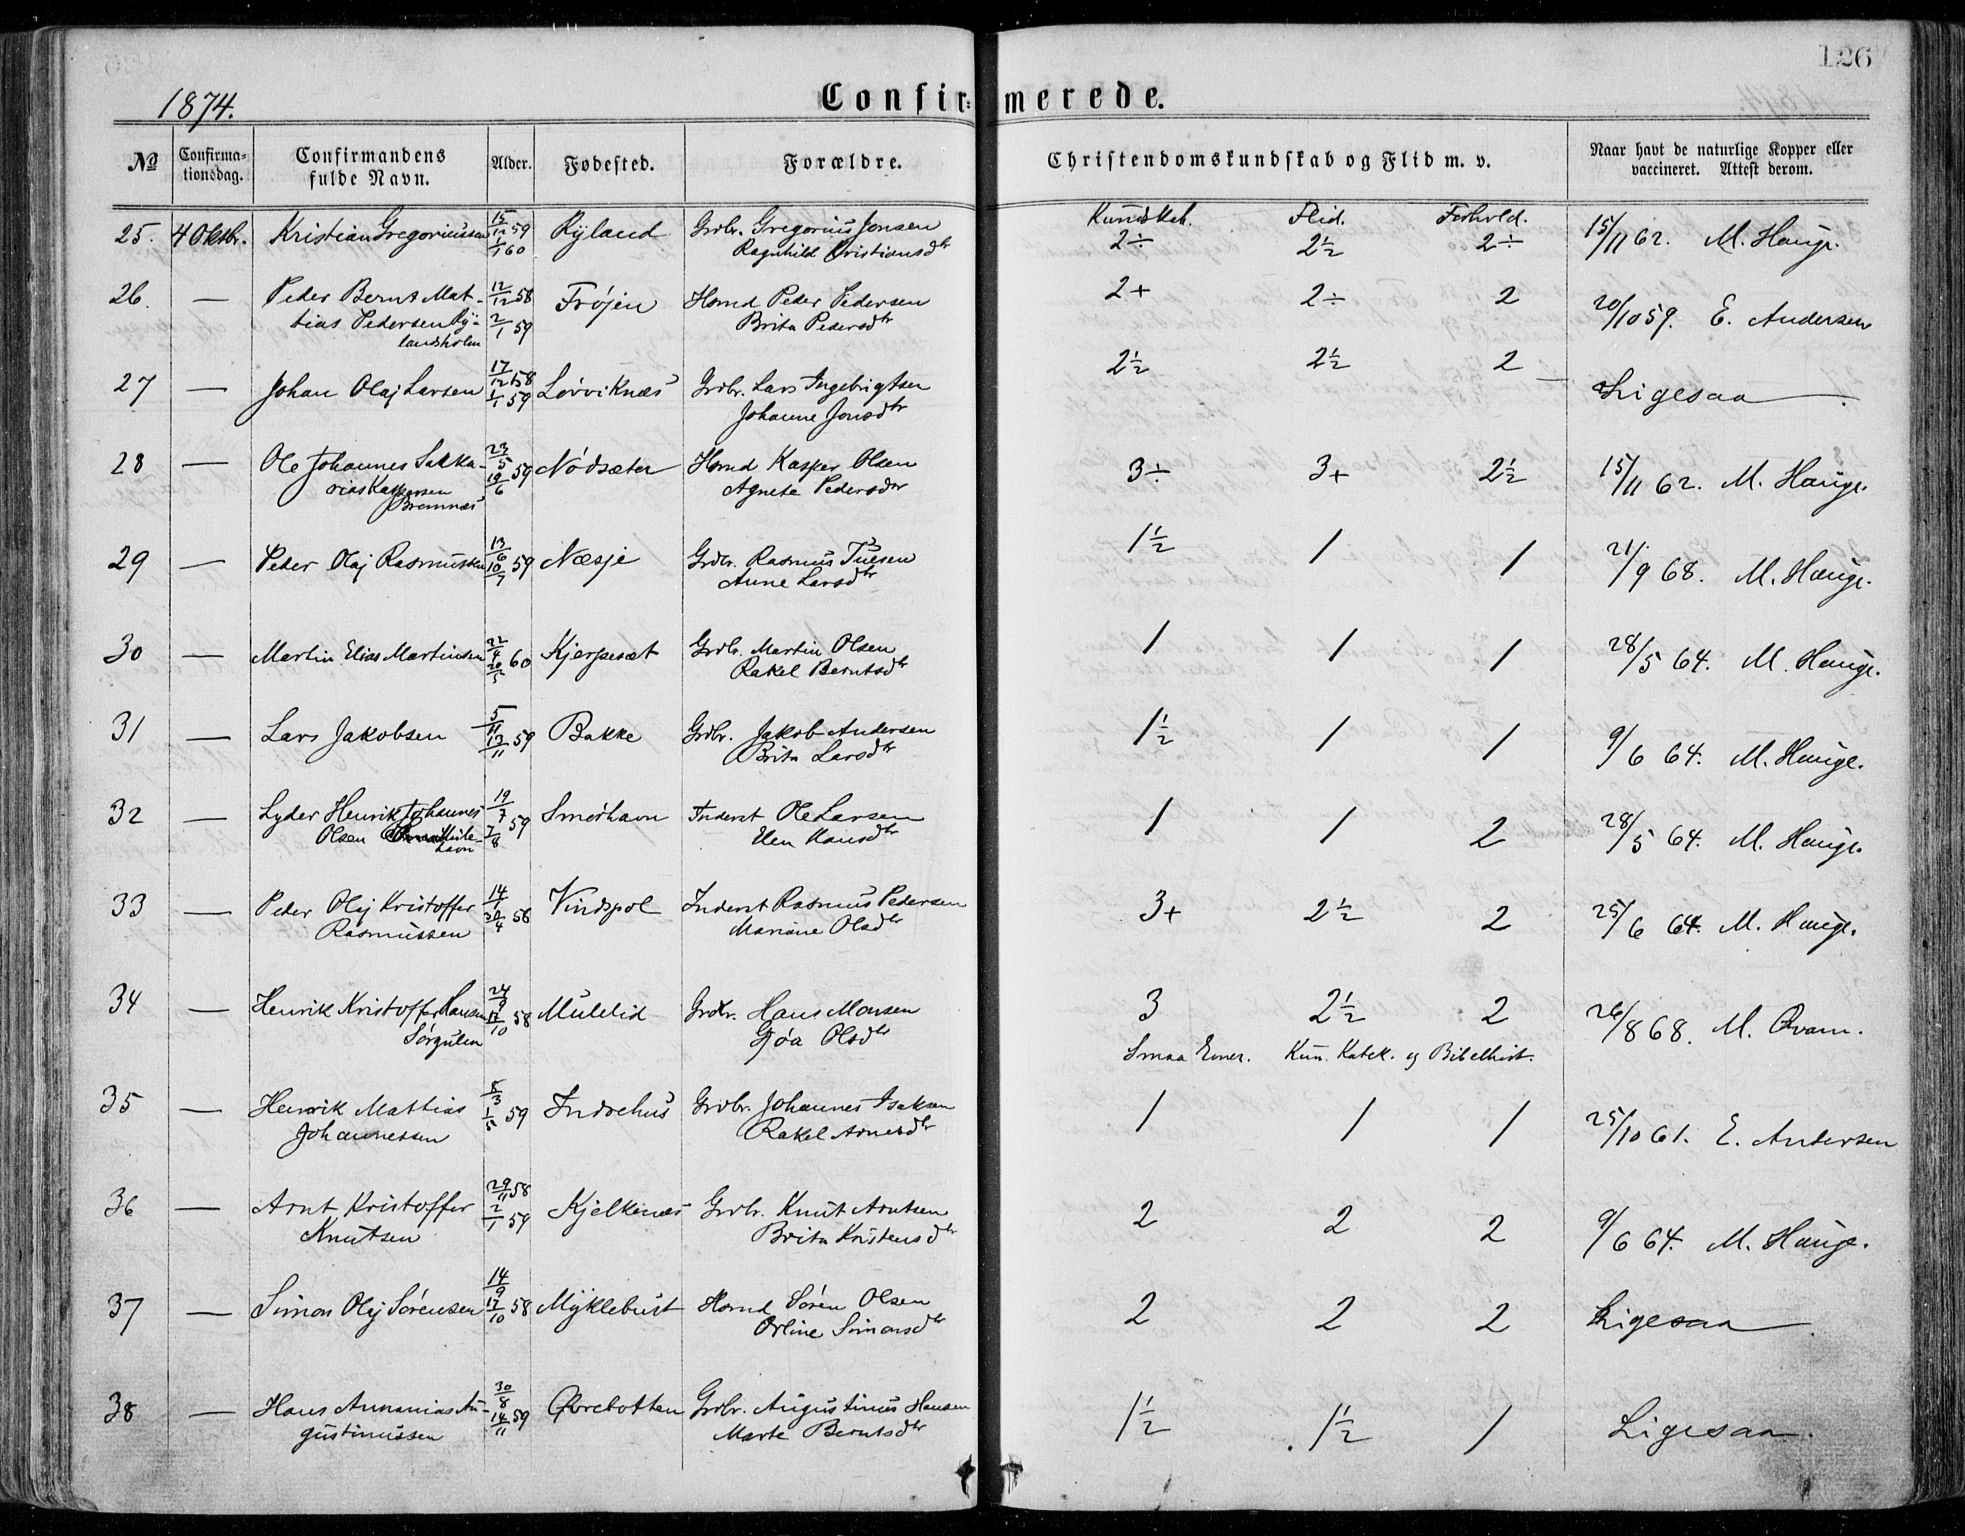 126
1874.
Confir= merede.
No
Confirma=
tionsdag.
Confirmandens
fulde Navn.
Alder.
Fødested.
Forældre.
Christendomskundskab og Flid m. v.
Naar havt de naturlige Kopper eller
vaccineret. Attest derom.
Kundskab. Flid. Forhold.
25. 4 Oktbr. Kristian Gregoriussen 15/12 59 1/1 60 Ryland Grdbr. Gregorius Jonsen 2÷ 2½ 2÷ 15/11 62. M. Hauge.
Ragnhild Kristiansdtr
26. — Peder Bernt Mat- 12/12 58 Frøjen Hsmd Peder Pedersen 2+ 2÷ 2 20/10 59. E. Andersen
tias Pedersen Ry- 2/1 59 Brita Pedersdtr
landsholm
27 — Johan Olaj Larsen 17/12 58 1/1 59 Lørviknæs Grdbr. Lars Ingebrigtsen 2½ 2½ 2 — Ligesaa
Johanne Jonsdtr
28 — Ole Johannes Sakka- 23/5 19/6 59 Nødsæter Hsmd Kasper Olsen 3÷ 3+ 2½ 15/11 62. M. Hauge.
rias Kaspersen Agnete Pedersdtr
Bremnæs
29 — Peder Olaj Rasmussen 13/6 10/7 59 Næsje Grdbr. Rasmus Tuesen 1½ 1 1 21/9 68. M. Hauge.
Anne Larsdtr
30 — Martin Elias Martinsen 22/4 20/5 60 Kjerpesæt Grdbr. Martin Olsen 1 1 1 28/5 64. M. Hauge.
Rakel Berntsdtr
31 — Lars Jakobsen 5/11 13/11 59 Bakke Grdbr. Jakob Andersen 1½ 1 1 9/6 64. M. Hauge.
Brita Larsdtr
32 — Lyder Henrik Johannes 19/7 7/8 59 Smørhavn Inderst Ole Larsen 1 1 2 28/5 64. M. Hauge.
Olsen havn Elen Hansdtr
33 — Peder Olaj Kristoffer 14/1 30/4 58 Vindspol Inderst Rasmus Pedersen 3+ 2½ 2 25/6 64. M. Hauge.
Rasmussen Mariane Olsdtr
34 — Henrik Kristoffer Hansen 24/9 17/10 58 Mulelid Grdbr. Hans Monsen 3 2½ 2 26/8 68. M. Qvam.
Sørgulen Gjøa Olsdtr
Smaa Evner. Kun. Katek. og Bibelhist.
35 — Henrik Mattias 8/3 1/5 59 Indrehus Grdbr. Johannes Isaksen 1 1 1 25/10 61. E. Andersen
Johannessen Rakel Arnesdtr
36 — Arnt Kristoffer 29/11 58 2/1 59 Kjelkenæs Grdbr. Knut Arntsen 2 2 2 9/6 64. M. Hauge.
Knutsen Brita Kristensdtr
37 — Simon Olaj Sørensen 14/9 17/10 58 Myklebust Hsmd Søren Olsen 2 2 2 Ligesaa
Orline Simonsdtr
38 — Hans Annanias Au- 30/8 14/11 59 Øvrebotten Grdbr. Augustinus Hansen 1½ 1½ 1 Ligesaa.
gustinussen Marte Berntsdtr